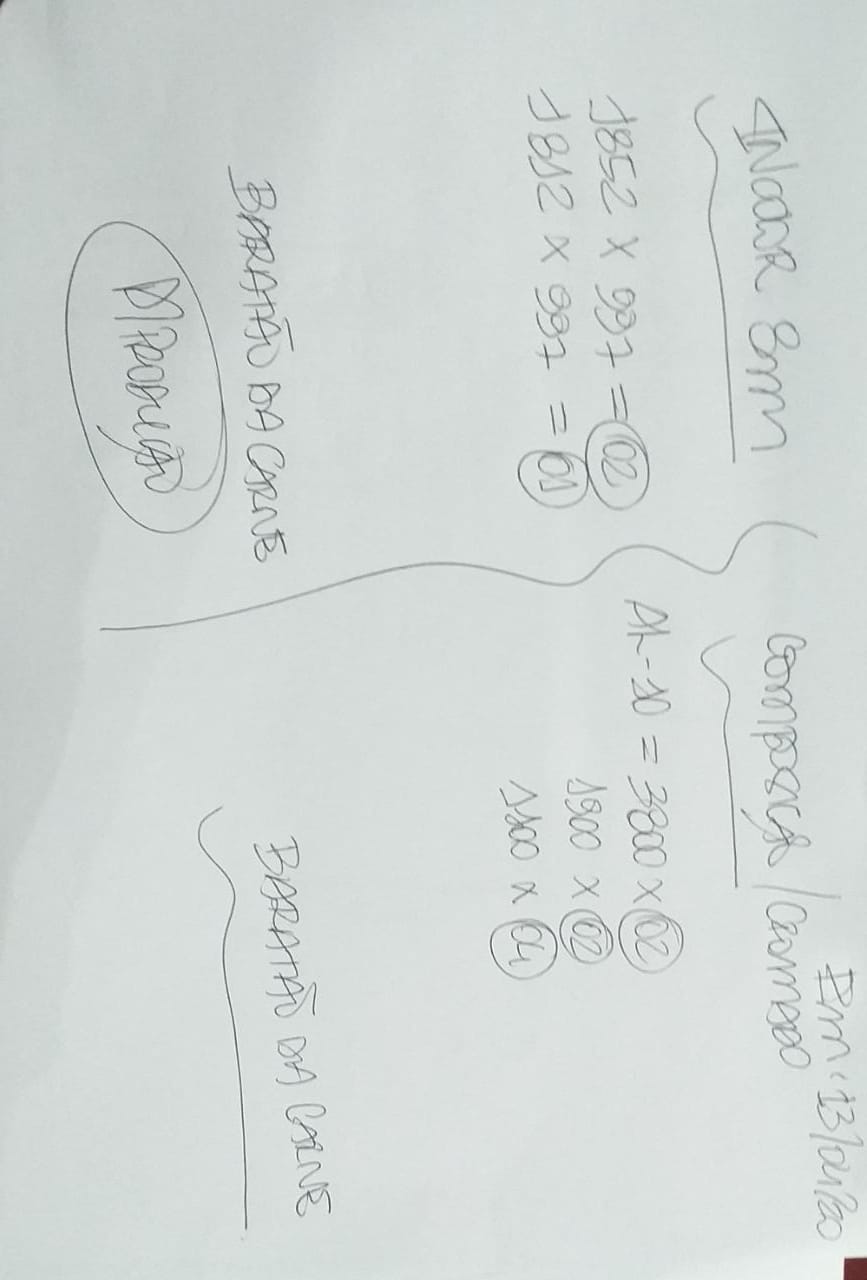 Em: 13/04/20
INCOLOR 8mm
1852 x 997 = 02
1812 x 997 = 01
BARATÃO DA CARNE
P/PRODUÇÃO
COMPOSIÇÃO /
AL-10 = 3800 x 02
1900 x 02
1100 x 04
BARATÃO DA CARNE